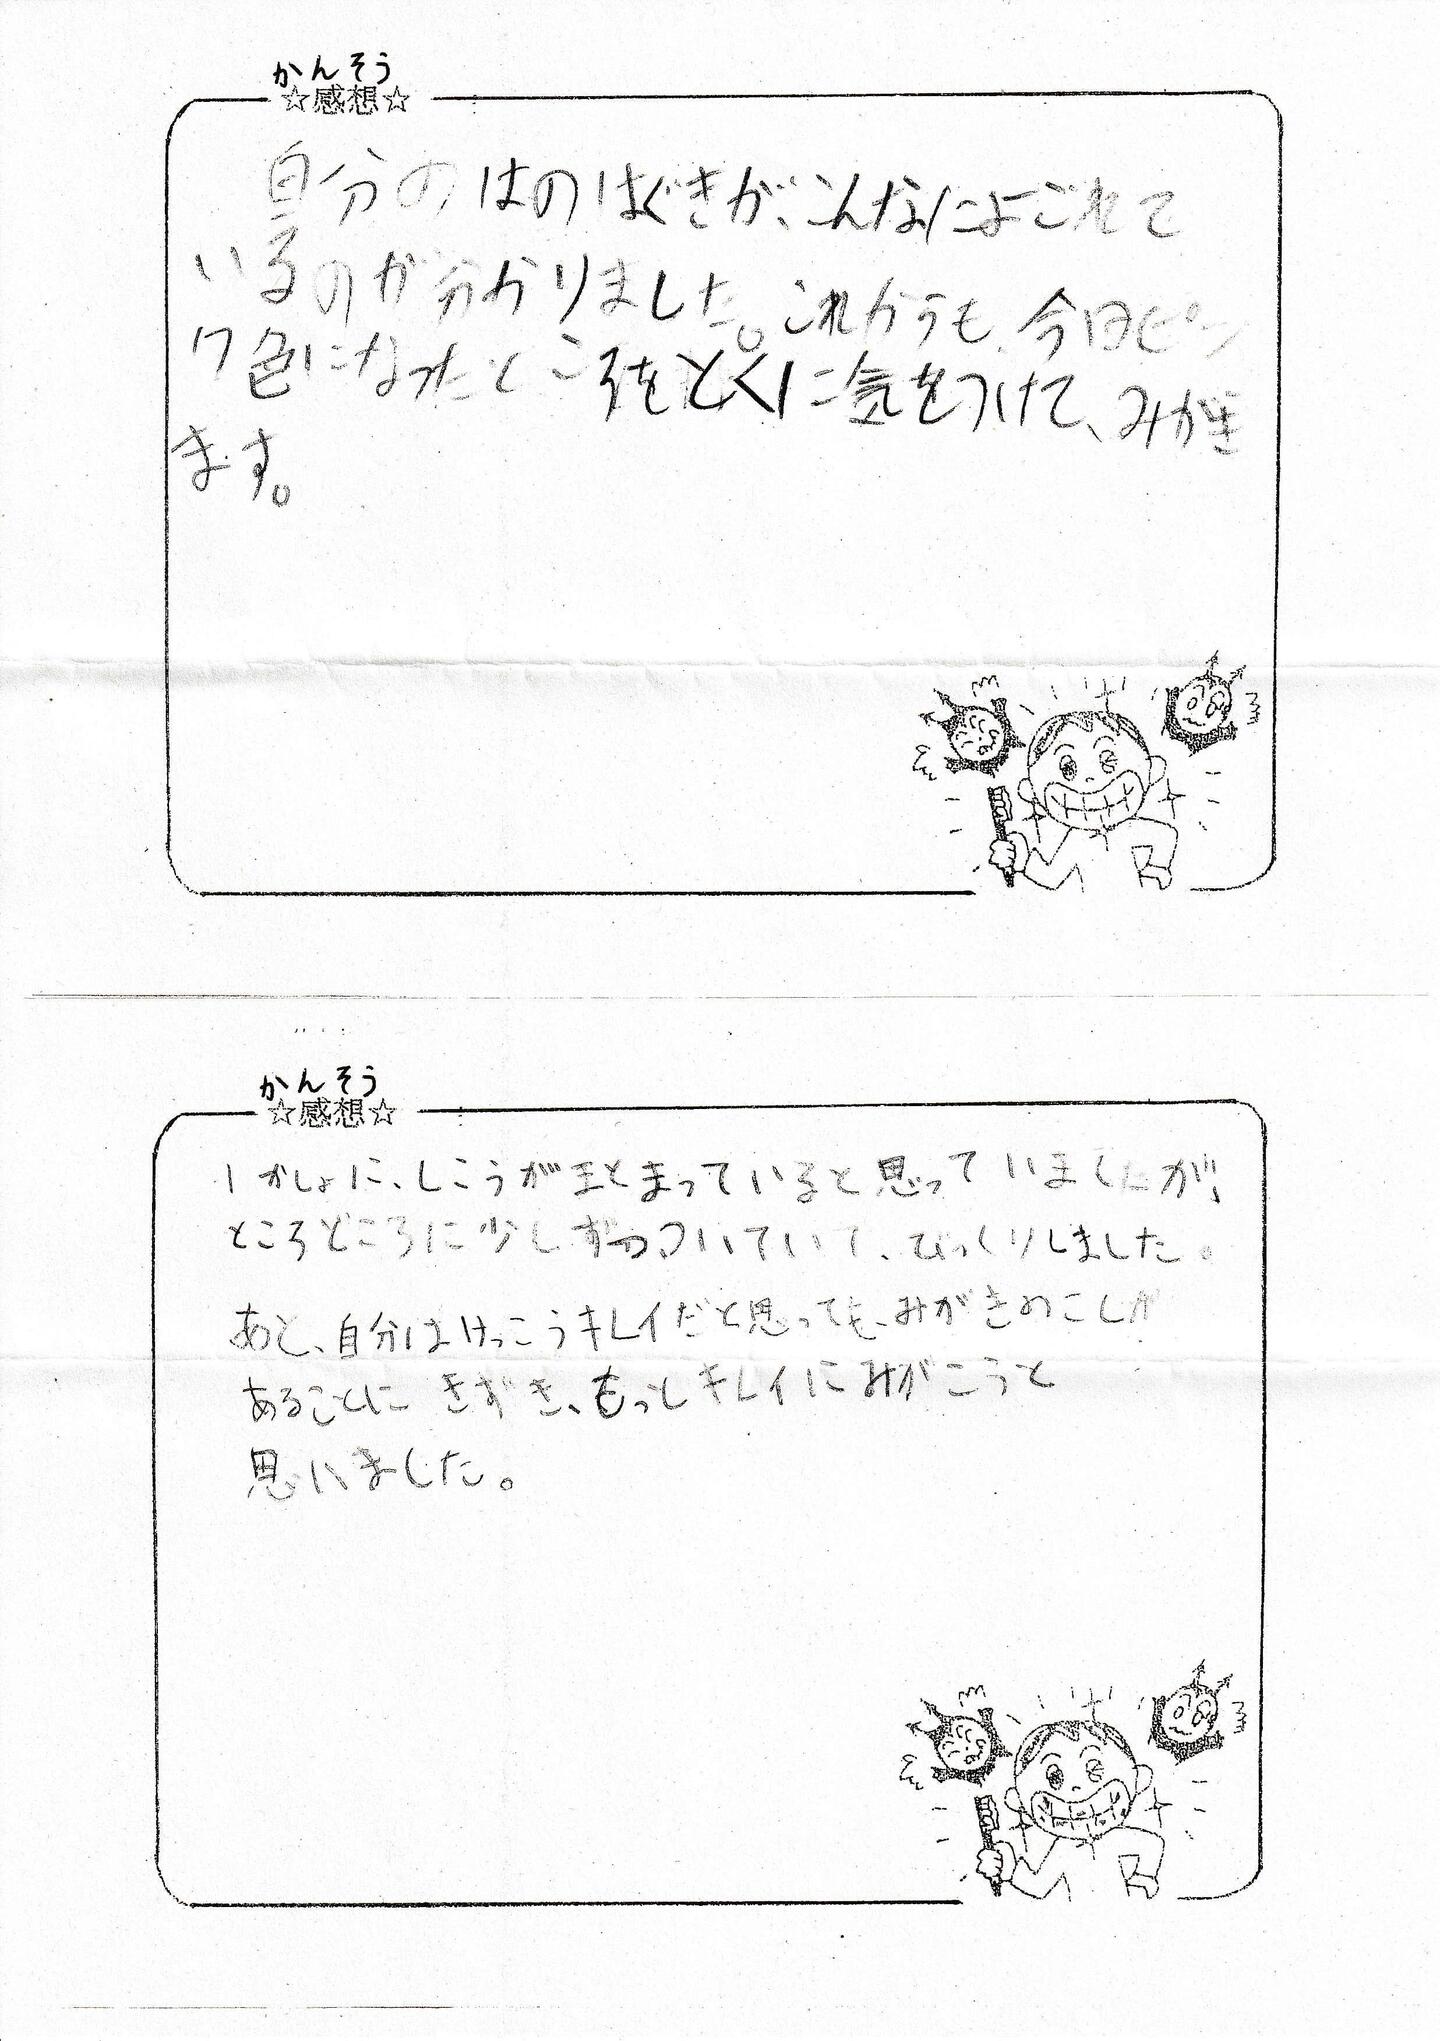 かんそう
☆感想☆
自分のはのはぐきが、こんなによごれて
いるのが分かりました。これからも、今日ピン
ク色になったところをとくに気をつけて、みがき
ます。
かんそう
☆感想☆
1かしょに、しこうがまとまっていると思っていましたが、
ところどころに少しずつついていて、びっくりしました。
あと、自分はけっこうキレイだと思っても、みがきのこしが
あることにきずき、もっとキレイにみがこうと
思いました。